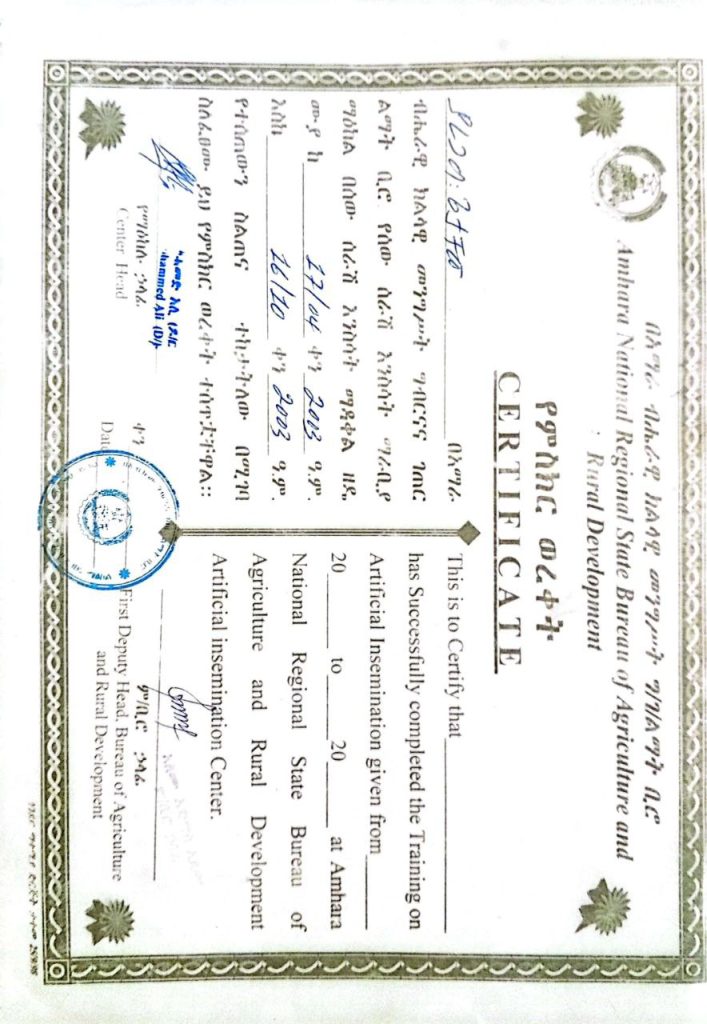 በአማራ ብሔራዊ ክልላዊ መንግሥት ግ/ገ/ልማት ቢሮ
Amhara National Regional State Bureau of Agriculture and
Rural Development
የምስክር ወረቀት
CERTIFICATE
በአማራ
ብሔራዊ ክልላዊ መንግሥት ግብርናና ገጠር
ልማት ቢሮ የሰው ሰራሽ እንስሳት ማራቢያ
ማዕከል በሰው ሰራሽ እንስሳት ማዳቀል ዘዴ
ሙያ ከ 17/04 ቀን 2003 ዓ.ም.
እስከ 16/10 ቀን 2003 ዓ.ም.
የተሰጠውን ስልጠና ተከታትለው በሚገባ
ስለፈፀሙ ይህ የምስክር ወረቀት ተሰጥቷቸዋል።
This is to Certify that
has Successfully completed the Training on
Artificial Insemination given from
20 to 20 at Amhara
National Regional State Bureau of
Agriculture and Rural Development
Artificial insemination Center.
hammed Ali (D/r
የማዕከሉ ኃላፊ
Center Head
ቀን
Date
ም/ቢሮ ኃላፊ
First Deputy Head, Bureau of Agriculture
and Rural Development